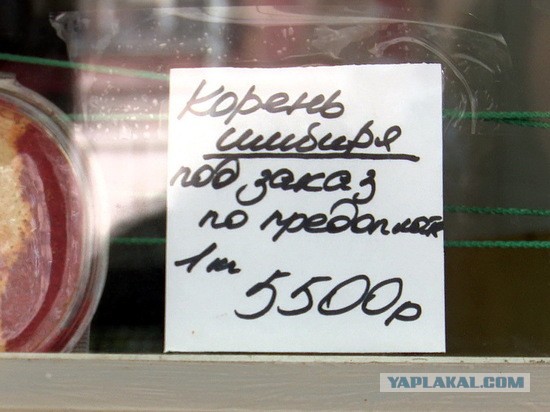 Корень
имбиря
под заказ
по предоплате
1 кг
5500р
YAPLAKAL.COM